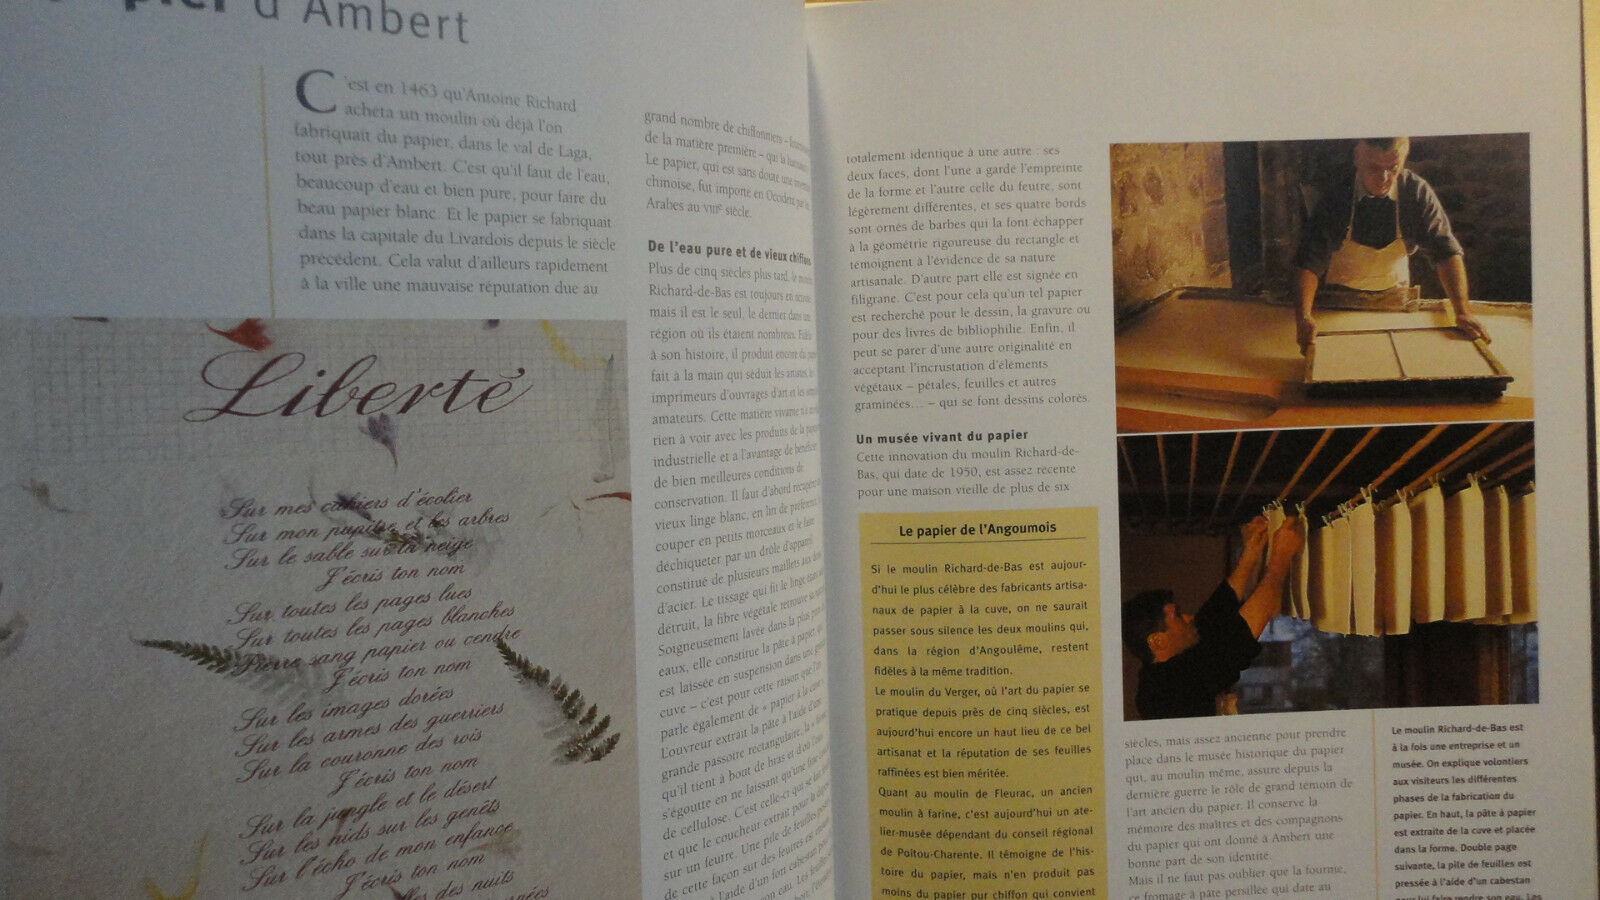 d'Ambert
C'est en 1463 qu'Antoine Richard
acheta un moulin où déjà l'on
fabriquait du papier, dans le val de Laga,
tout près d'Ambert. C'est qu'il faut de l'eau,
beaucoup d'eau et bien pure, pour faire du
beau papier blanc. Et le papier se fabriquait
dans la capitale du Livardois depuis le siècle
précédent. Cela valut d'ailleurs rapidement
à la ville une mauvaise réputation due au
Liberté
Sur mes cahiers d'écolier
Sur mon pupitre et les arbres
Sur le sable sur la neige
J'écris ton nom
Sur toutes les pages lues
Sur toutes les pages blanches
Pierre sang papier ou cendre
J'écris ton nom
Sur les images dorées
Sur les armes des guerriers
Sur la couronne des rois
J'écris ton nom
Sur la jungle et le désert
Sur les nids sur les genêts
Sur l'écho de mon enfance
J'écris ton nom
des nuits
grand nombre de chiffonniers
de la matière première – qui la
Le papier, qui est sans doute une
chinoise, fut importé en Occident par les
Arabes au VIIIe siècle.
De l'eau pure et de vieux chiffons
Plus de cinq siècles plus tard, le
Richard-de-Bas est toujours en
mais il est le seul, le dernier dans une
région où ils étaient nombreux.
à son histoire, il produit encore du
fait à la main qui séduit les artistes, les
imprimeurs d'ouvrages d'art et les
amateurs. Cette matière vivante n'a
rien à voir avec les produits de la
industrielle et a l'avantage de bénéficier
de bien meilleures conditions de
conservation. Il faut d'abord récupérer
vieux linge blanc, en lin de préférence,
couper en petits morceaux et le faire
déchiqueter par un drôle d'appareil
constitué de plusieurs maillets aux
d'acier. Le tissage qui fit le linge étant
détruit, la fibre végétale retrouve sa
Soigneusement lavée dans la plus
eaux, elle constitue la pâte à papier,
est laissée en suspension dans une
cuve – c'est pour cette raison que l'on
parle également de « papier à la cuve ».
L'ouvreur extrait la pâte à l'aide d'une
grande passoire rectangulaire, la
qu'il tient à bout de bras et d'où l'eau
s'égoutte en ne laissant qu'une fine
de cellulose. C'est celle-ci qui
et que le coucheur extrait pour la
sur un feutre. Une pile de feuilles
de cette façon sur des feutres est
à l'aide d'un fort cabestan
totalement identique à une autre : ses
deux faces, dont l'une a gardé l'empreinte
de la forme et l'autre celle du feutre, sont
légèrement différentes, et ses quatre bords
sont ornés de barbes qui la font échapper
à la géométrie rigoureuse du rectangle et
témoignent à l'évidence de sa nature
artisanale. D'autre part elle est signée en
filigrane. C'est pour cela qu'un tel papier
est recherché pour le dessin, la gravure ou
pour des livres de bibliophilie. Enfin, il
peut se parer d'une autre originalité en
acceptant l'incrustation d'éléments
végétaux – pétales, feuilles et autres
graminées… – qui se font dessins colorés.
Un musée vivant du papier
Cette innovation du moulin Richard-de-
Bas, qui date de 1950, est assez récente
pour une maison vieille de plus de six
Le papier de l'Angoumois
Si le moulin Richard-de-Bas est aujour-
d'hui le plus célèbre des fabricants artisa-
naux de papier à la cuve, on ne saurait
passer sous silence les deux moulins qui,
dans la région d'Angoulême, restent
fidèles à la même tradition.
Le moulin du Verger, où l'art du papier se
pratique depuis près de cinq siècles, est
aujourd'hui encore un haut lieu de ce bel
artisanat et la réputation de ses feuilles
raffinées est bien méritée.
Quant au moulin de Fleurac, un ancien
moulin à farine, c'est aujourd'hui un ate-
lier-musée dépendant du conseil régional
de Poitou-Charente. Il témoigne de l'his-
toire du papier, mais n'en produit pas
moins du papier pur chiffon qui convient
siècles, mais assez ancienne pour prendre
place dans le musée historique du papier
qui, au moulin même, assure depuis la
dernière guerre le rôle de grand témoin de
l'art ancien du papier. Il conserve la
mémoire des maîtres et des compagnons
du papier qui ont donné à Ambert une
bonne part de son identité.
Mais il ne faut pas oublier que la fourme,
ce fromage à pâte persillée qui date au
Le moulin Richard-de-Bas est
à la fois une entreprise et un
musée. On explique volontiers
aux visiteurs les différentes
phases de la fabrication du
papier. En haut, la pâte à papier
est extraite de la cuve et placée
dans la forme. Double page
suivante, la pile de feuilles est
pressée à l'aide d'un cabestan
pour lui faire rendre son eau. Les